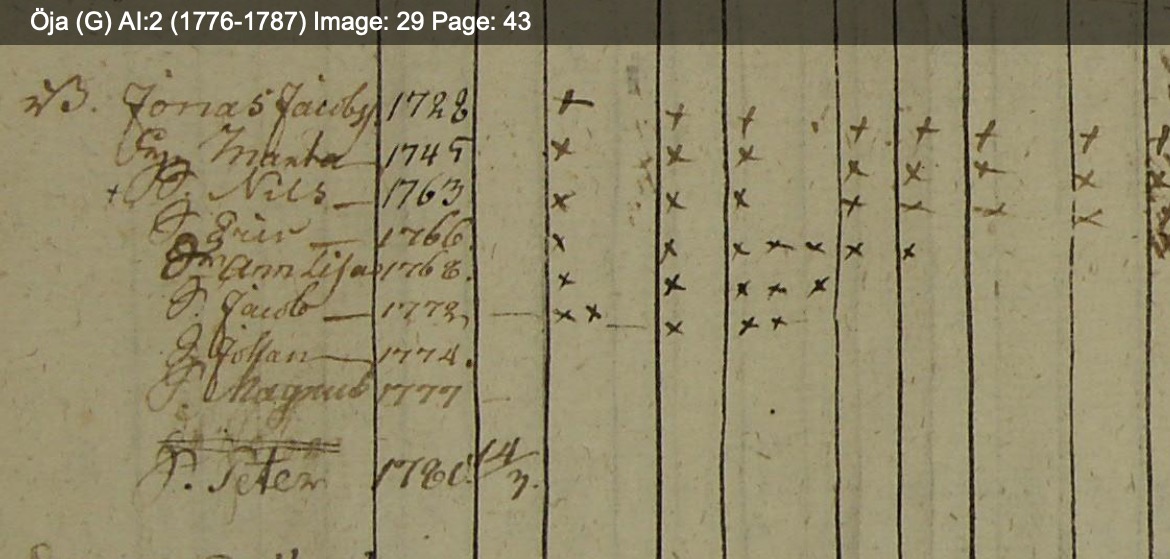 Öja (G) AI:2 (1776-1787) Image: 29 Page: 43
Jonas Jacobss 1728
Maria 1745
+ S. Nils 1763
S. Eric 1766.
Dr Ann Lisa 1768.
S. Jacob 1772
S. Johan 1774.
S. Magnus 1777
S. Peter 1780 14/3.